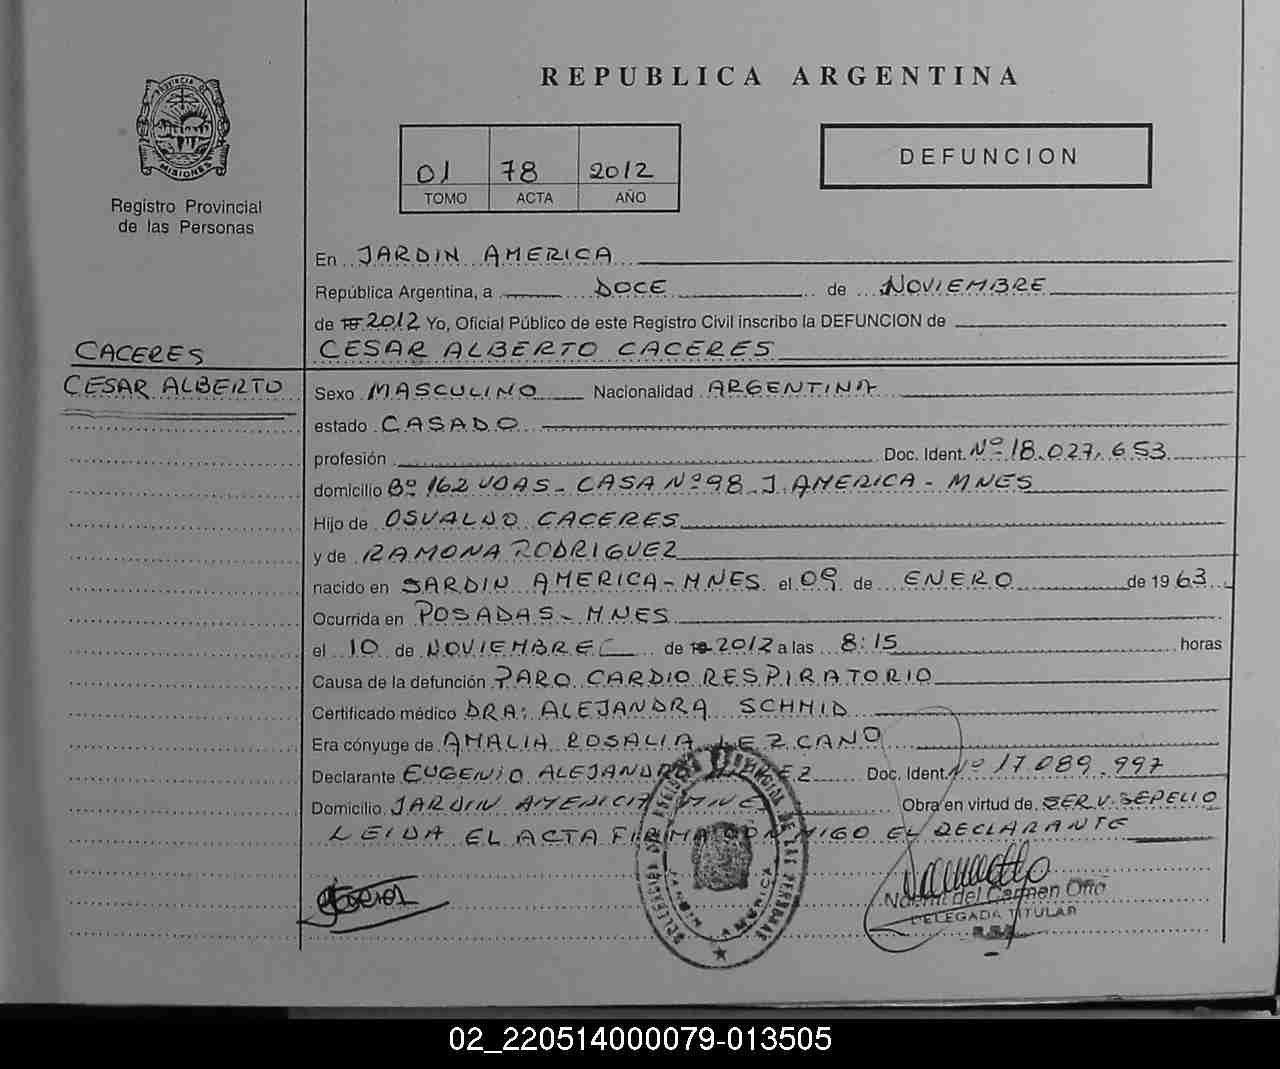 REPUBLICA ARGENTINA
PROVINCIA DE
MISIONES
Registro Provincial
de las Personas
01 78 2012
TOMO ACTA AÑO
DEFUNCION
En JARDIN AMERICA
República Argentina, a DOCE de NOVIEMBRE
de 19 2012 Yo, Oficial Público de este Registro Civil inscribo la DEFUNCION de
CESAR ALBERTO CACERES
CACERES
CESAR ALBERTO
Sexo MASCULINO Nacionalidad ARGENTINA
estado CASADO
profesión Doc. Ident. Nº 18.027.653
domicilio Bº 162 VDAS - CASA Nº 98 J. AMERICA - MNES
Hijo de OSVALDO CACERES
y de RAMONA RODRIGUEZ
nacido en JARDIN AMERICA - MNES el 09 de ENERO de 1963
Ocurrida en POSADAS - MNES
el 10 de NOVIEMBRE de 19 2012 a las 8:15 horas
Causa de la defunción PARO CARDIO RESPIRATORIO
Certificado médico DRA: ALEJANDRA SCHMID
Era cónyuge de AMALIA ROSALIA LEZCANO
Declarante EUGENIO ALEJANDRO Doc. Ident. Nº 17.089.997
Domicilio JARDIN AMERICA MNES Obra en virtud de SERV. SEPELIO
LEIDA EL ACTA FIRMA CONMIGO EL DECLARANTE
DELEGACION DEL REGISTRO PROVINCIAL DE LAS PERSONAS
JARDIN AMERICA
Noemi del Carmen Otto
DELEGADA TITULAR
02_220514000079-013505